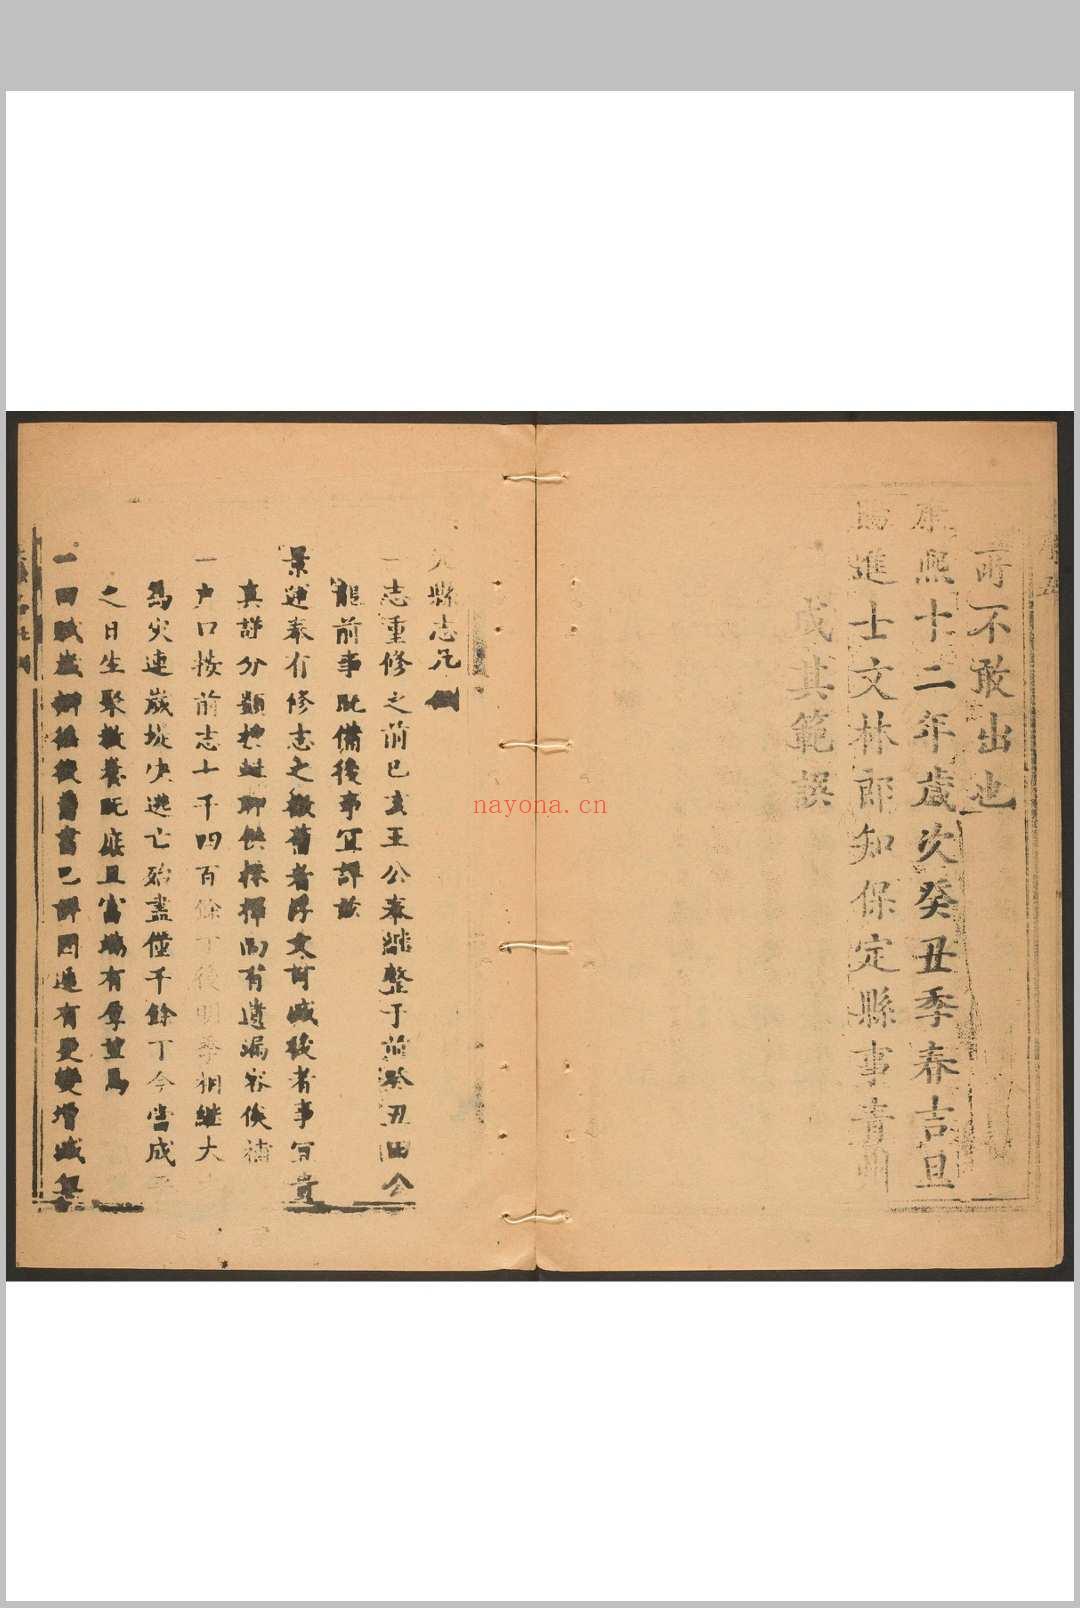 所不敢出也
康熙十二年歲次癸丑季春吉旦
賜進士文林郎知保定縣事青州
成其範譔
縣志凡例
一志重修之前已亥王公奉繼整于前癸丑田公
龍前事既備後事宜詳故
景運奉有修志之檄舊者存文討減後者事宜貴
真詳分類 聊供採擇尚有遺漏容俟補
一戶口按前志七千四百餘丁後明季相繼大
為災連歲堤決逃亡殆盡僅千餘丁今當成平
之日生聚教養既庶且富端有厚望焉
一田賦 後舊書已詳因遇有更變增減
nayona.cn